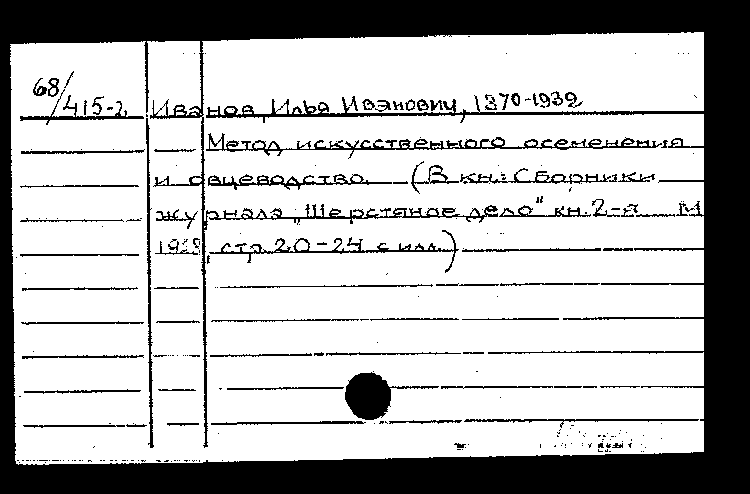 68/415-2 Иванов, Илья Иванович, 1870-1932
Метод искусственного осеменения
и овцеводство. (В кн.: Сборники
журнала "Шерстяное дело" кн. 2-я М
1928, стр. 20-24 с илл.)